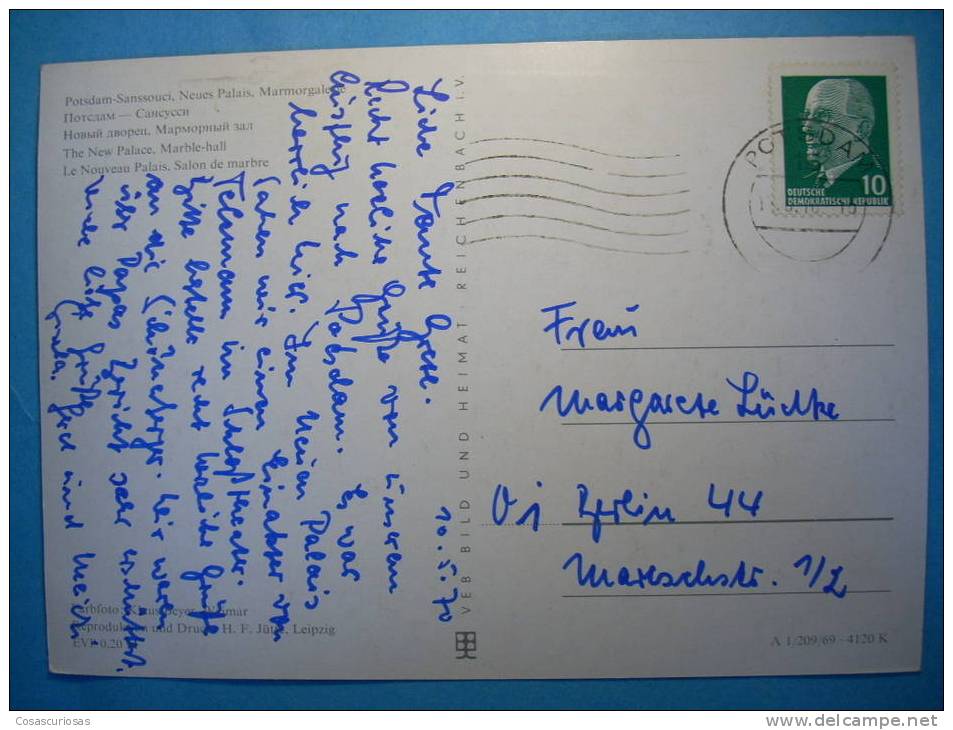 Potsdam-Sanssouci, Neues Palais, Marmorgalerie
Потсдам — Сансусси
Новый дворец, Мраморный зал
The New Palace, Marble-hall
Le Nouveau Palais, Salon de marbre
10.5.70
Liebe Tante Grete.
Recht herzliche Grüße von unserem
Ausflug nach Potsdam. Es war
herrlich hier. Im Neuen Palais
sahen wir einen Einakter von
Telemann im Schloßtheater.
Bitte bestelle recht herzliche Grüße
an die Schöneberger. Wir waren
über Papas Bericht sehr erschüttert.
liebe Grüße
und
Farbfoto: Klaus Beyer, Weimar
Reproduktion und Druck: H. F. Jütte, Leipzig
EVP 0,20
VEB BILD UND HEIMAT REICHENBACH I. V.
POTSDAM
DEUTSCHE
DEMOKRATISCHE REPUBLIK
10
Frau
Margarete Lüdtke
Berlin 44
Mareschstr. 1/2
A 1/209/69 - 4120 K
Cosascuriosas
www.delcampe.net